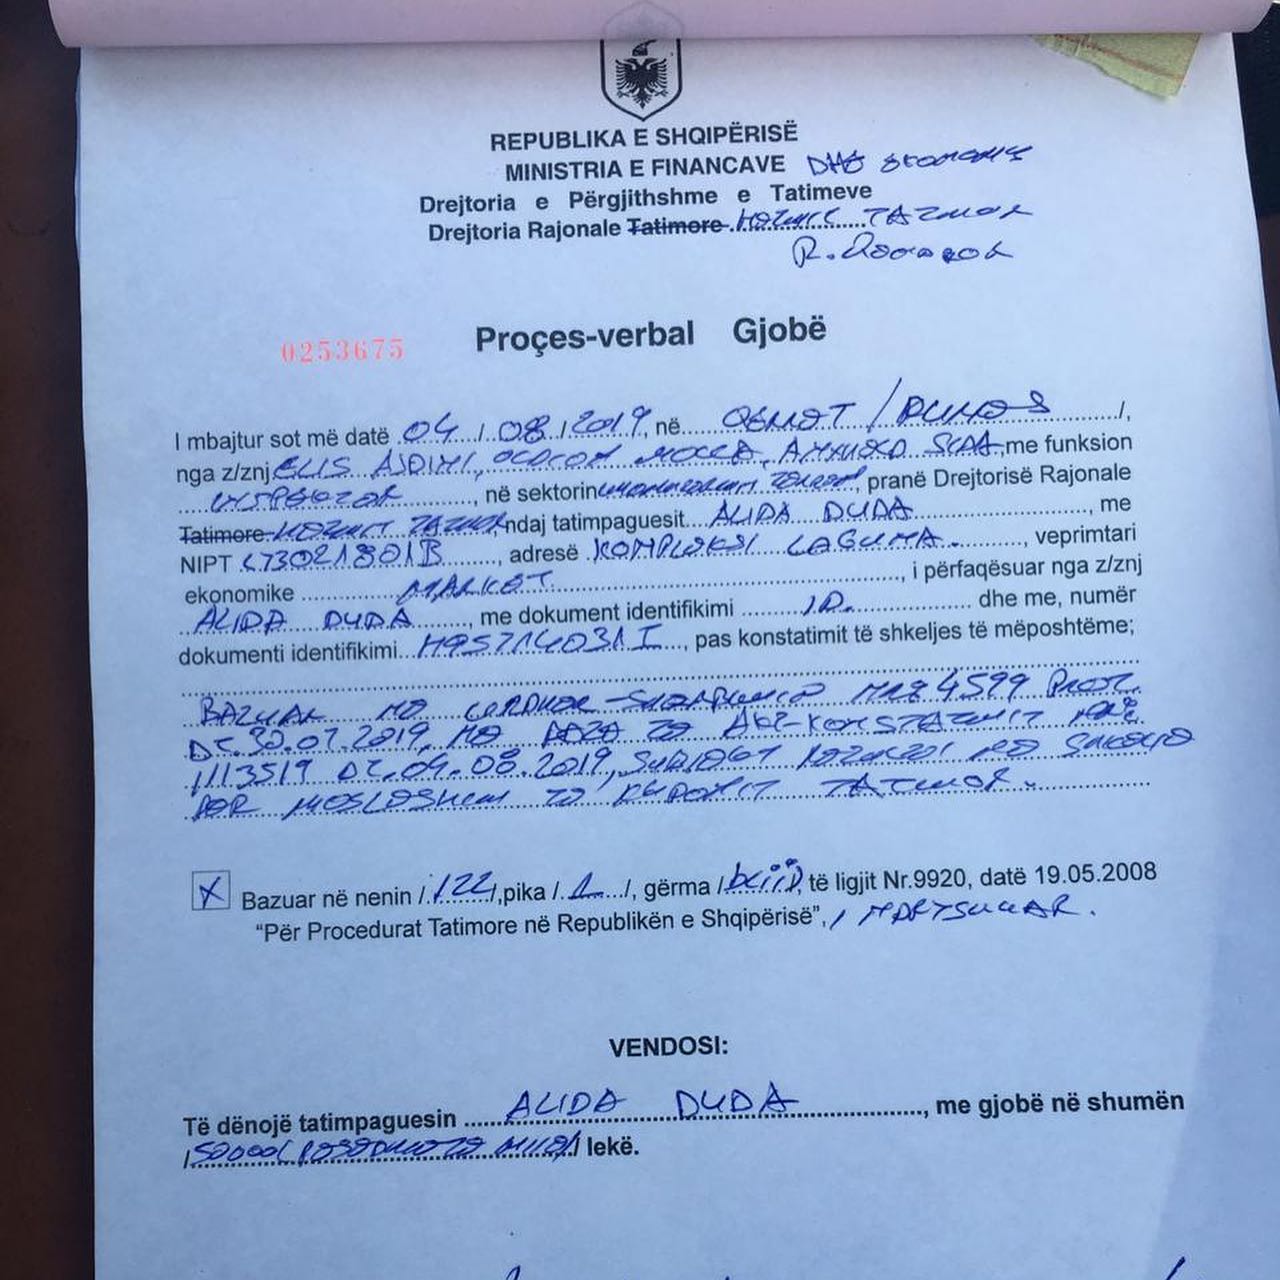 REPUBLIKA E SHQIPËRISË
MINISTRIA E FINANCAVE DHE EKONOMIS
Drejtoria e Përgjithshme e Tatimeve
Drejtoria Rajonale Tatimore HETIMIT TATIMOR
0253675 Proçes-verbal Gjobë
I mbajtur sot më datë 04/08/2019, në QERRET / DURRES /,
nga z/znj ELIS me funksion
INSPEKTOR, në sektorin pranë Drejtorisë Rajonale
Tatimore HETIMIT TATIMOR ndaj tatimpaguesit ALIDA DUDA, me
NIPT L73021801B, adresë KOMPLEKSI LAGUNA., veprimtari
ekonomike MARKET, i përfaqësuar nga z/znj
ALIDA DUDA, me dokument identifikimi ID. dhe me, numër
dokumenti identifikimi H95714031I, pas konstatimit të shkeljes të mëposhtëme;
BAZUAR NE URDHER-SHERBIMIN NR 4599 PROT.
DT. 30.07.2019, NE BAZE TE AKT-KONSTATIMIT NR
1113519 DT. 04.08.2019, SUBJEKT
PER MOSLESHIM TE KUPONIT TATIMOR.
X Bazuar në nenin /122/, pika /1/, gërma / të ligjit Nr.9920, datë 19.05.2008
“Për Procedurat Tatimore në Republikën e Shqipërisë”, I NDRYSHUAR.
VENDOSI:
Të dënojë tatimpaguesin ALIDA DUDA, me gjobë në shumën
/50000 (PESEDHJETE MIJE)/ lekë.